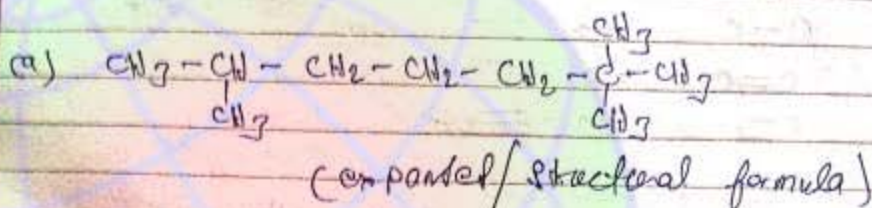 CH3
(a) CH3 - CH - CH2 - CH2 - CH2 - C - CH3
CH3 CH3
(expanded/structural formula)